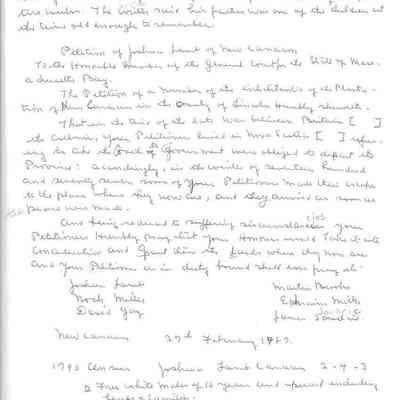 tive winter. The writer said his father was one of the children at
the time old enough to remember.
Petition of Joshua Lamb of New Canaan
To the Honorable Member of the General Court for the State of Mass-
achusetts Bay.
The Petition of a Number of the inhabitants of the Planta-
tion of New Canaan in the County of Lincoln Humbly sheweth.
That in the time of the late War between Britain [ ]
the Colonies, your Petitioners lived in Nova Scotia [ ] refu-
sing to take the Oath of Government were obliged to depart the
Province: accordingly, in the winter of seventeen hundred
and seventy seven some of your Petitioners made their escape
to the place where they now are, and they arrived as soon as
Peace was made.
And being reduced to suffering circumstances your
Petitioners Humbly pray that your Honours would Take it into
Consideration and Grant them the Lands where they now are
and Your Petitioners as in duty bound shall ever pray etc
Joshua Lamb
Noah Miller
David Gay
Martin Brooks
Ephraim Mills
James
New Canaan 27th February 1787.
1790 Census Joshua Lamb Canaan 2-4-3
2 Free white males of 16 years and upward including
heads of families.